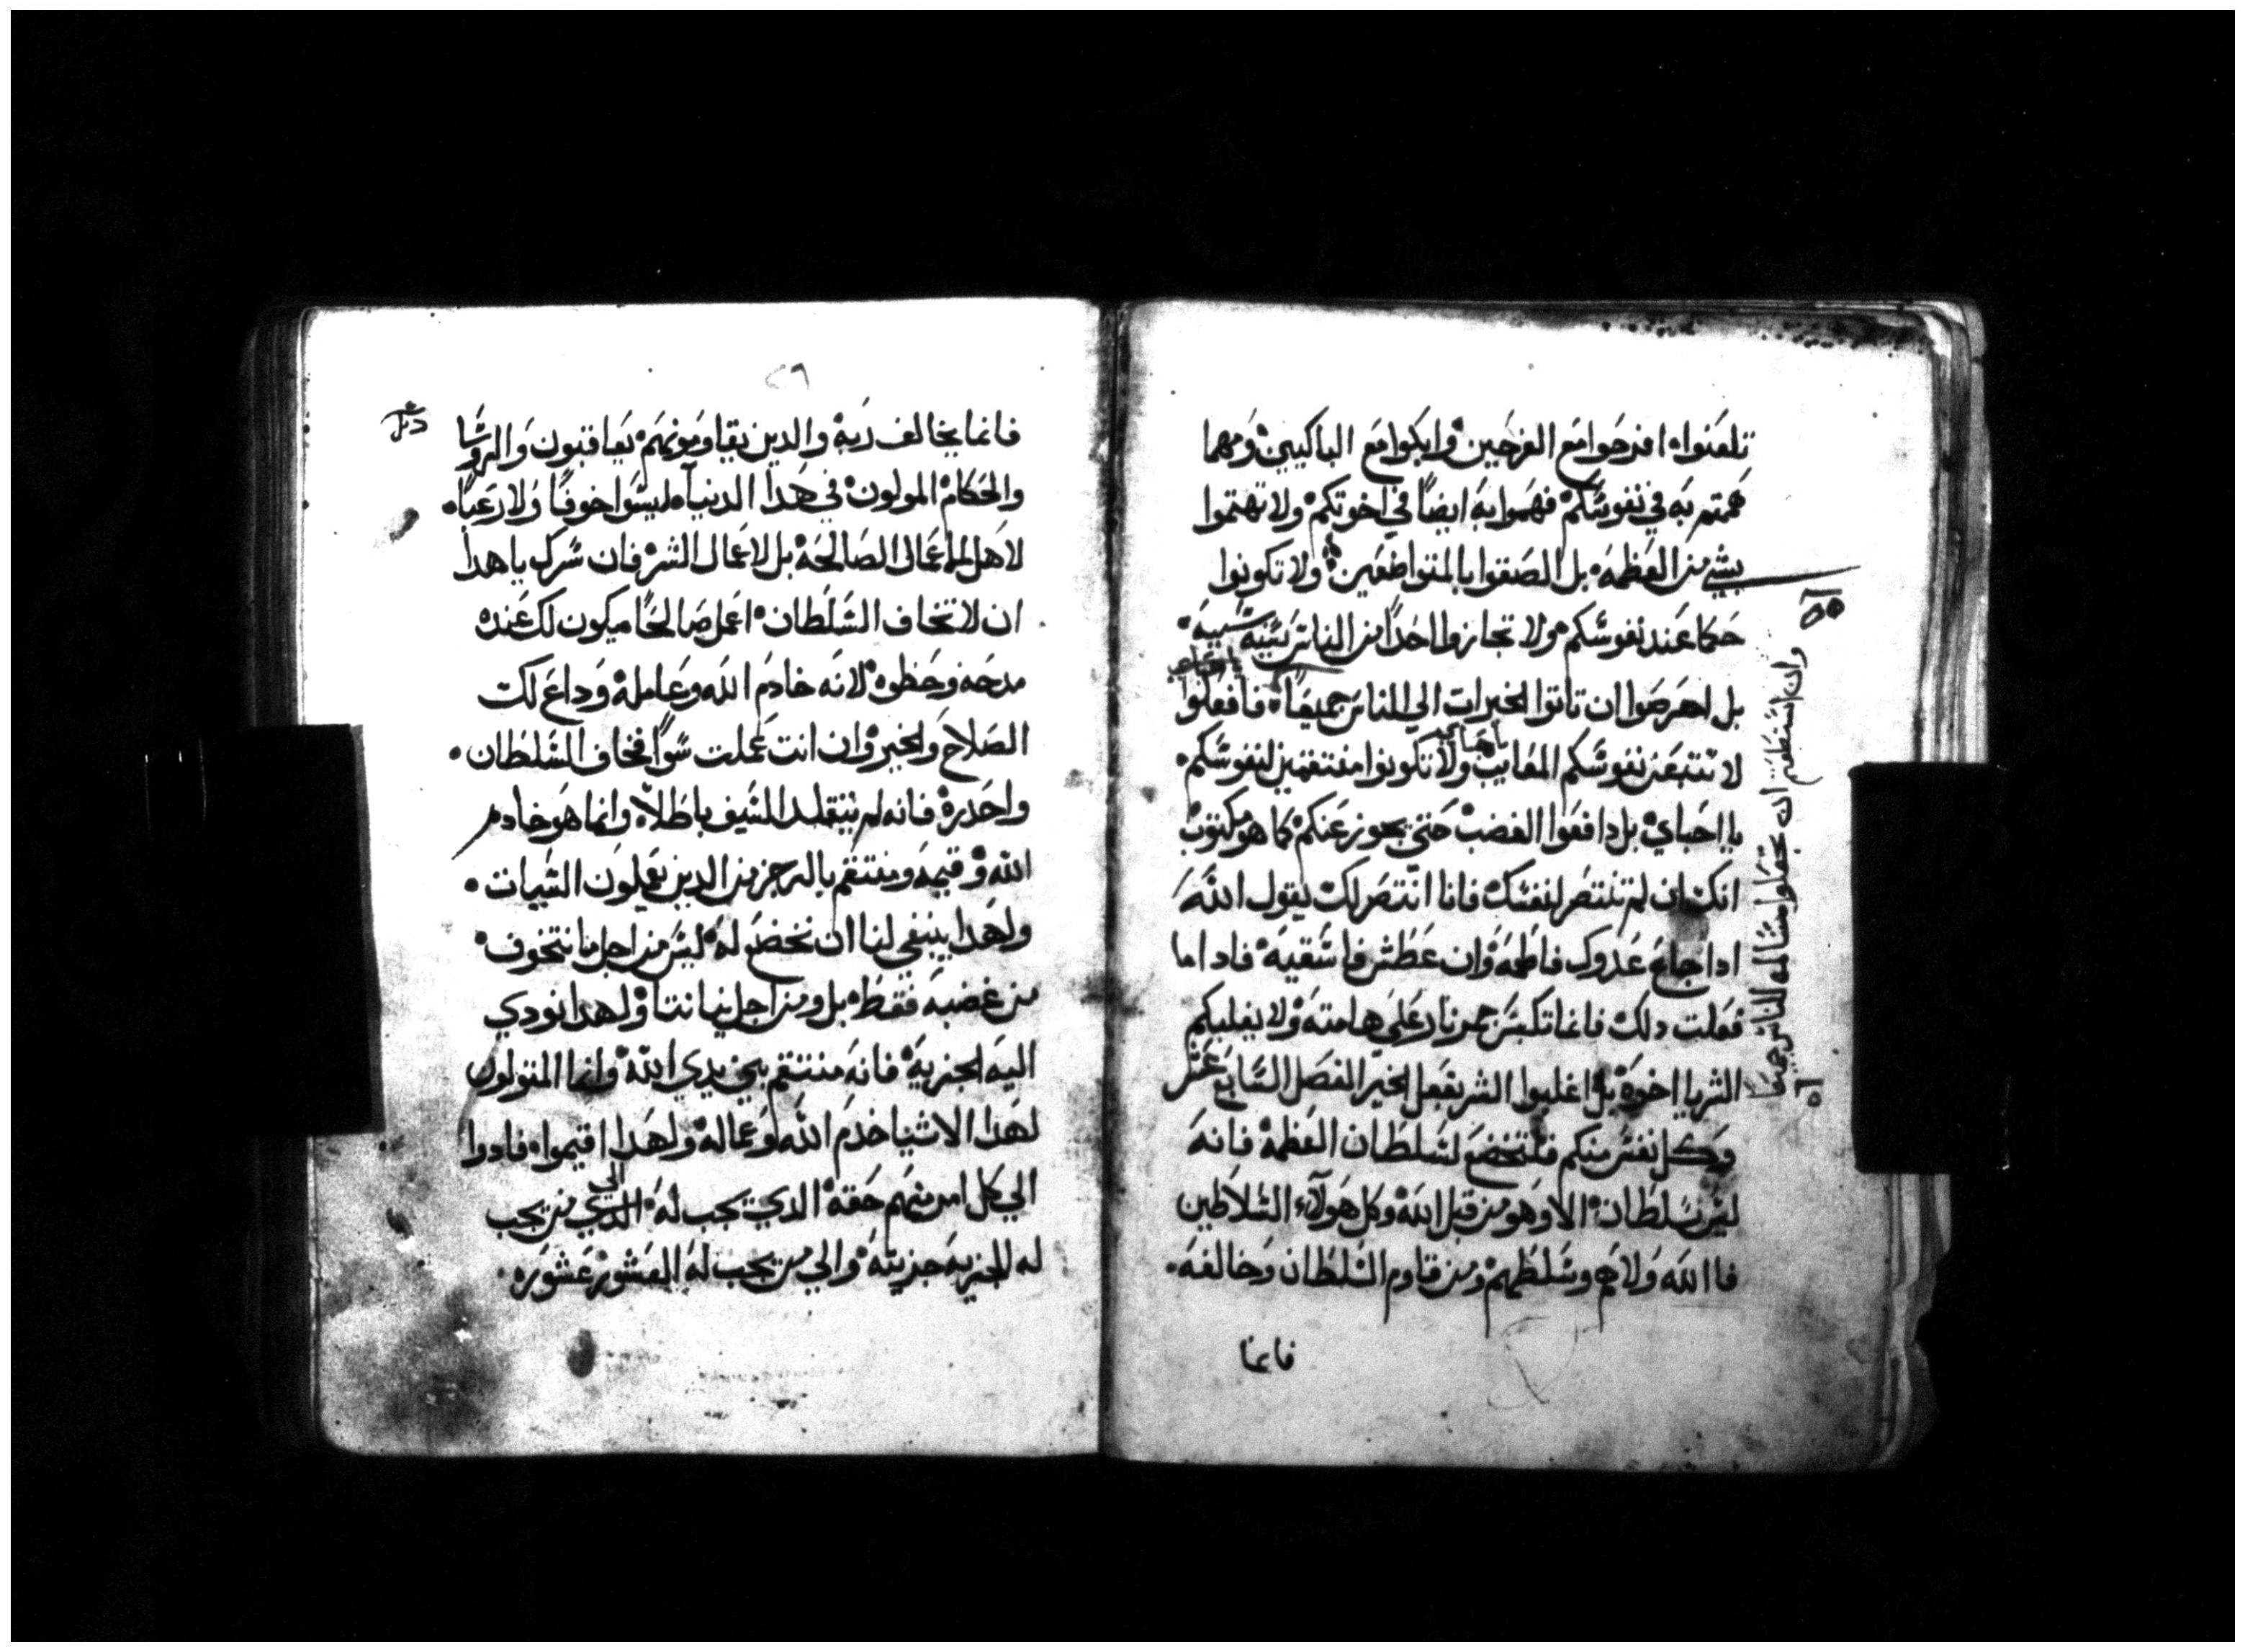 تلعنواه افرحوا مع الفرحين وابكوا مع الباكيين ومهما
هممتم به في نفوسكم فهموا به ايضاً في اخوتكم ولا تهتموا
بشي من العظمه بل الصقوا بالمتواضعين ولا تكونوا
حكما عند نفوسكم ولا تجازوا احداً من الناس بسيه سيه
بل احرصوا ان تاتوا الخيرات الي الناس جميعاً فافعلوا
لا تتبعن نفوسكم المعايب ولا تكونوا منتقمين لنفوسكم
يا احباي
يا احباي بل دافعوا الغضب حتي يجوز عنكم كما هو مكتوب
انك ان لم تنتصر لنفسك فانا انتصر لك يقول الله
ادا جاع عدوك فاطعمه وان عطش فاسقيه فادا ما
فعلت دلك فانما تكبس جمر نار علي هامته ولا يغلبكم
الشر يا اخوه بل اغلبوا الشر بفعل الخير الفصل السابع عشر
وكل نفس منكم فلتخضع لسلطان العظمه فانه
ليس سلطان الا وهو من قبل الله وكل هولاء السلاطين
فاالله ولاهم وسلطهم ومن قاوم السلطان وخالفه
فانما
وان استطعتم ان تجعلوا مسالمه للناس جميعا
فانما يخالف ربه والدين يقاومونهم يعاقبون والروسا
والحكام المولون في هدا الدنياه ليسوا خوفاً ولا رعباً
لاهل الماعمال الصالحه بل لاعمال الشر فان سرك يا هدا
ان لا تخاف السلطان اعمل صالحاً ميكون لك عنده
مدحه وحظوه لانه خادم الله وعامله وداع لك
الصلاح والخير وان انت عملت سواً فخاف السلطان
واحدره فانه لم يتقلد السيف باطلاً وانما هو خادم
الله وقيمه ومنتقم بالرجز من الدين يعملون السيات
ولهدا ينبغي لنا ان نخضع له ليس من اجل ما نتخوف
من غضبه فقط بل ومن اجل نياتنا ولهدا نودي
اليه الجزيه فانه منتقم بين يدي الله وانما المتولون
لهدا الاشيا خدم الله وعماله ولهدا اقيموا فادوا
الي كل امر منهم حقه الدي يجب له الدي من يجب
الي
له للجزيه جزيته والي من يجب له العشور عشوره